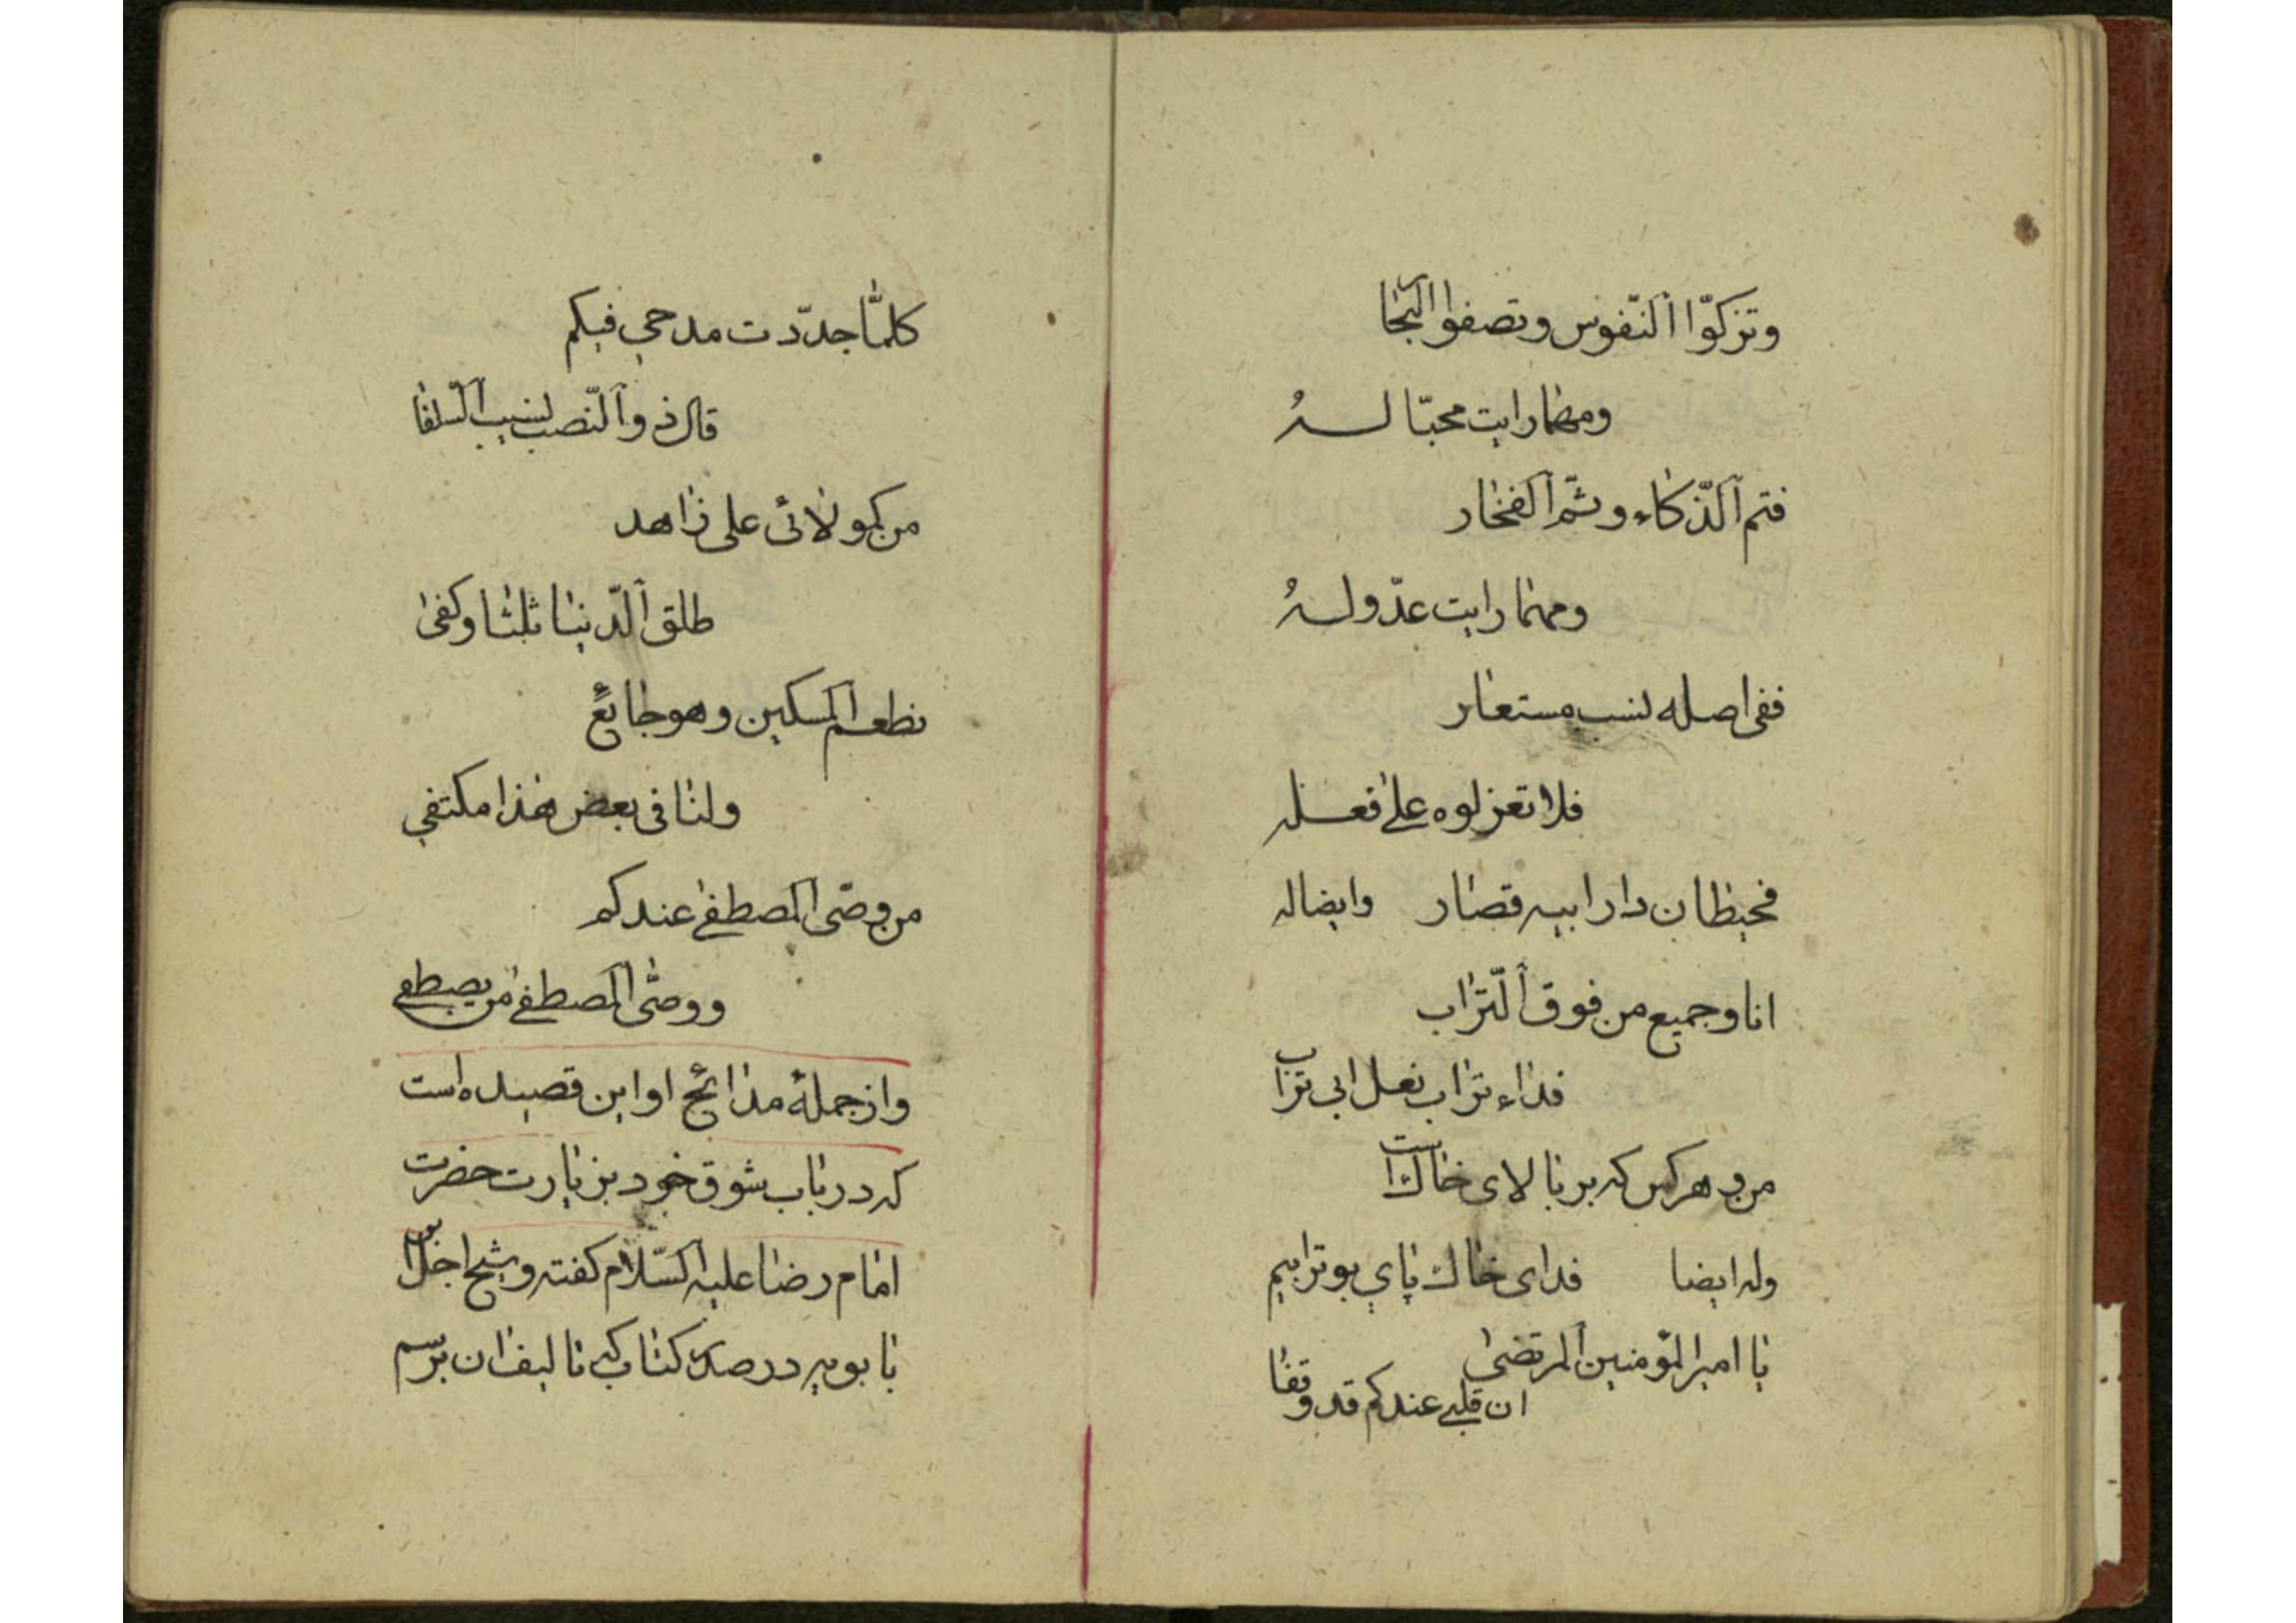 وتزكوّا النّفوس وتصفوا النجا
ومهما رايت محبّا لــه
فتم الذّكاء وثمّ الفخار
ومهما رايت عدّو لــه
ففى اصله نسب مستعار
فلا تعزلوه على فعــله
فحيطان دار ابيه قصار وايضاله
انا وجميع من فوق التّراب
فداء تراب نعل ابى تراب
من و هركس كه بر بالاى خاك است
فداى خاك پاي بوترابيم وله ايضا
يا امير المؤمنين المرتضى
ان قلبي عندكم قد وقفا
كلمّا جدّدت مدحي فيكم
قال ذو النّصب لنسيب السّلفا
من كمولائى على زاهد
طلق الدّنيا ثلثا وكفى
يطعم المسكين وهو جائعً
ولنا فى بعض هذا مكتفي
من وصّى المصطفى عندكم
ووصّى المصطفى من يصطفى
واز جملهٔ مدائح او اين قصيده است
كه در باب شوق خود بزيارت حضرت
امام رضا عليه السّلام كفته و شيخ اجل ابن
بابويه در صدر كتاب كه تاليف ان برسم